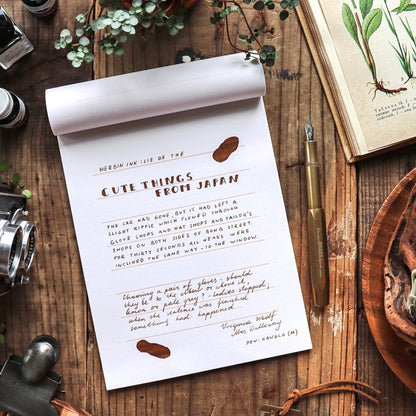 HERBIN INK: LIE DE THÉ
CUTE THINGS
FROM JAPAN
THE CAR HAD GONE, BUT IT HAD LEFT A
SLIGHT RIPPLE WHICH FLOWED THROUGH
GLOVE SHOPS AND HAT SHOPS AND TAILOR'S
SHOPS ON BOTH SIDES OF BOND STREET.
FOR THIRTY SECONDS ALL HEADS WERE
INCLINED THE SAME WAY - TO THE WINDOW.
Choosing a pair of gloves - should
they be to the elbow or above it,
lemon or pale grey? - ladies stopped;
when the sentence was finished
something had happened.
Virginia Woolf
Mrs Dalloway
PEN: KAWECO (M)